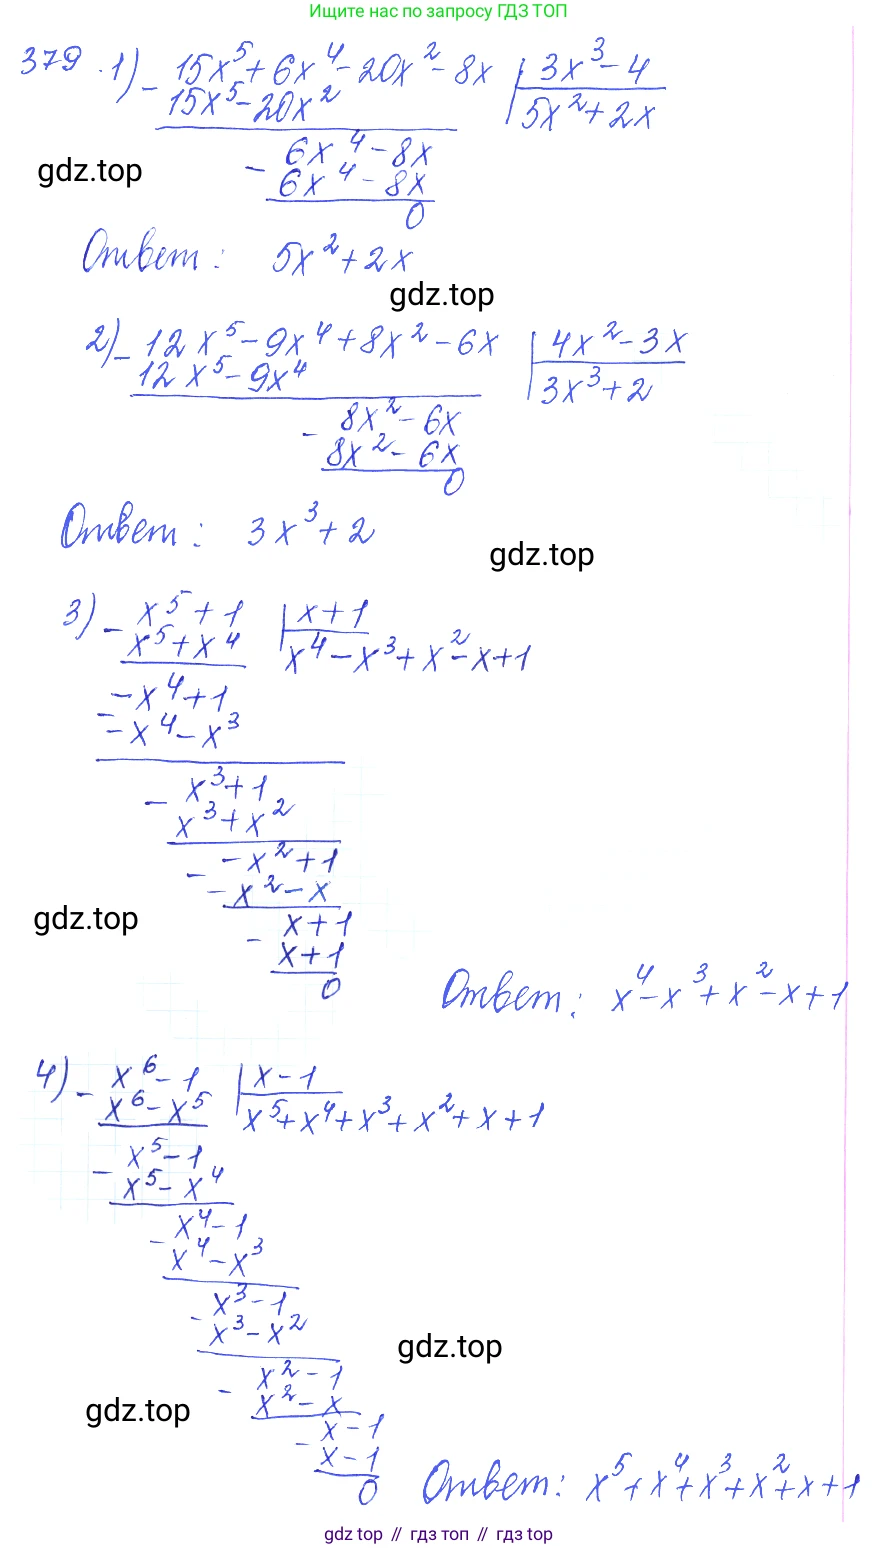 Ищите нас по запросу ГДЗ ТОП
379. 1) - 15x⁵ + 6x⁴ - 20x² - 8x | 3x³ - 4
15x⁵ - 20x² | 5x² + 2x
- 6x⁴ - 8x
gdz.top
6x⁴ - 8x
0
Ответ: 5x² + 2x
gdz.top
2) - 12x⁵ - 9x⁴ + 8x² - 6x | 4x² - 3x
12x⁵ - 9x⁴ | 3x³ + 2
- 8x² - 6x
8x² - 6x
0
Ответ: 3x³ + 2
gdz.top
3) - x⁵ + 1 | x + 1
x⁵ + x⁴ | x⁴ - x³ + x² - x + 1
- -x⁴ + 1
-x⁴ - x³
- x³ + 1
x³ + x²
- -x² + 1
-x² - x
gdz.top
- x + 1
x + 1
0
Ответ: x⁴ - x³ + x² - x + 1
4) - x⁶ - 1 | x - 1
x⁶ - x⁵ | x⁵ + x⁴ + x³ + x² + x + 1
- x⁵ - 1
x⁵ - x⁴
- x⁴ - 1
x⁴ - x³
- x³ - 1
x³ - x²
gdz.top
- x² - 1
x² - x
gdz.top
- x - 1
x - 1
0
Ответ: x⁵ + x⁴ + x³ + x² + x + 1
gdz top // гдз топ // гдз top